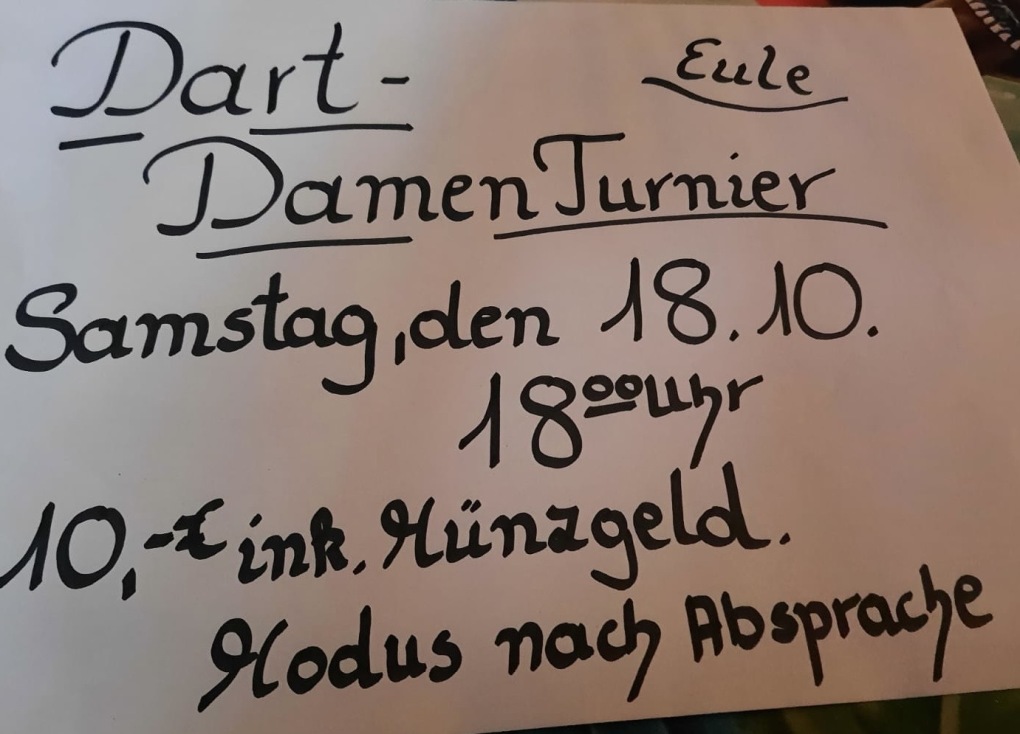 Dart - Eule
Damen Turnier
Samstag, den 18.10.
18⁰⁰ Uhr
10,-€ ink. Münzgeld.
Modus nach Absprache